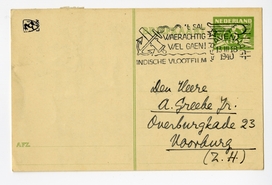 NEDERLAND
'T SAL
WAERACHTIG
WEL GAEN!
1940
INDISCHE VLOOTFILM
Den Heere
A. Greebe Jr.
Overburgkade 23
Voorburg
(Z.H.)
AFZ.